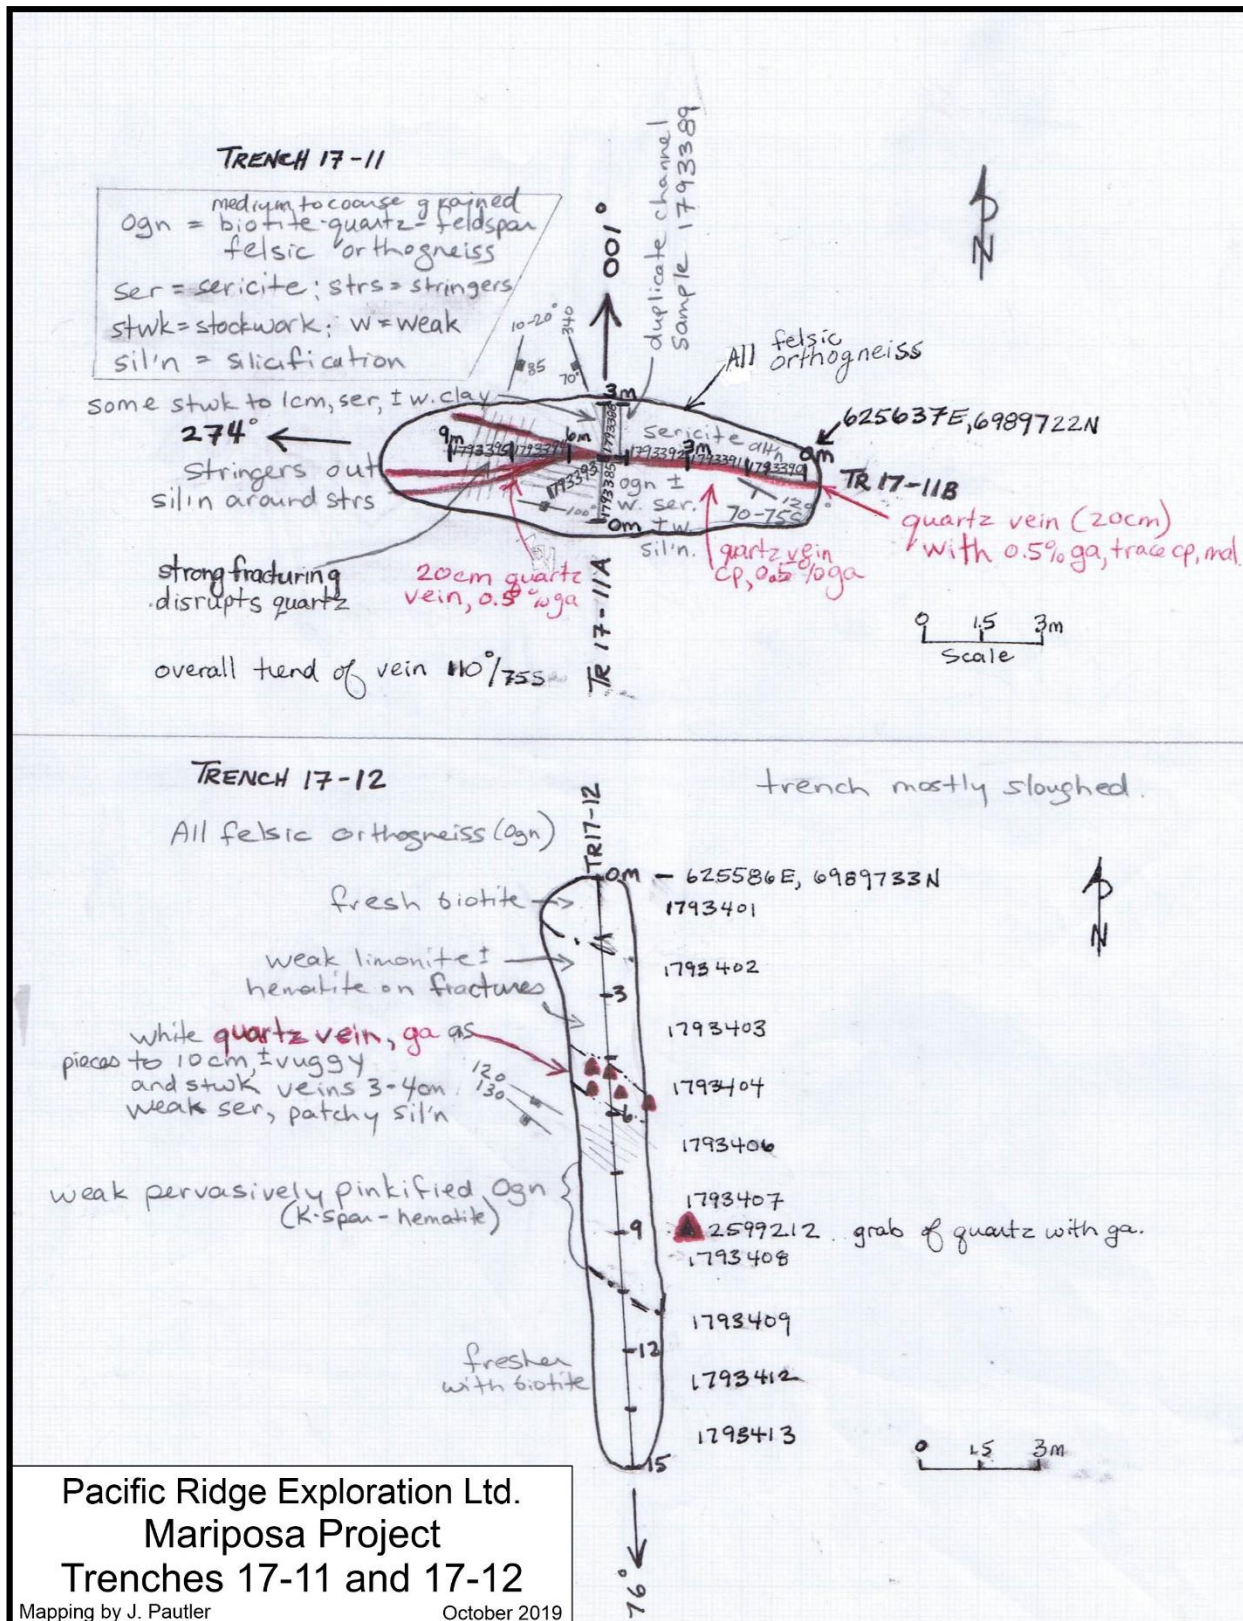 TRENCH 17-11
medium to coarse grained
Ogn = biotite-quartz-feldspar
felsic orthogneiss
ser = sericite; strs = stringers
stwk = stockwork; w = weak
sil'n = silicification
001°
duplicate channel
sample 1793389
N
10-20°
85
340
70°
All felsic
orthogneiss
some stwk to 1cm, ser, ± w. clay
274°
Stringers out
sil'n around strs
3m
625637E, 6989722N
9m
6m
3m
0m
sericite alt'n
1793395
1793394
1793393
1793392
1793391
1793390
1793386
1793385
TR 17-11B
ogn ±
w. ser.
± w.
sil'n.
100°
0m
70-75S
quartz vein (20cm)
with 0.5% ga, trace cp, mal.
strong fracturing
disrupts quartz
20cm quartz
vein, 0.5% ga
quartz vein
cp, 0.5% ga
TR 17-11A
0 1.5 3m
Scale
overall trend of vein 110°/75S
TRENCH 17-12
trench mostly sloughed.
All felsic orthogneiss (Ogn)
TR17-12
0m – 625586E, 6989733N
fresh biotite
1793401
N
weak limonite ±
hematite on fractures
1793402
3
1793403
white quartz vein, ga as
pieces to 10cm, ± vuggy
and stwk veins 3-4cm
weak ser, patchy sil'n
120
130
1793404
6
1793406
weak pervasively pinkified Ogn
(K-spar-hematite)
1793407
9
2599212 grab of quartz with ga.
1793408
1793409
12
fresher
with biotite
1793412
1793413
15
0 1.5 3m
76°
Pacific Ridge Exploration Ltd.
Mariposa Project
Trenches 17-11 and 17-12
Mapping by J. Pautler October 2019